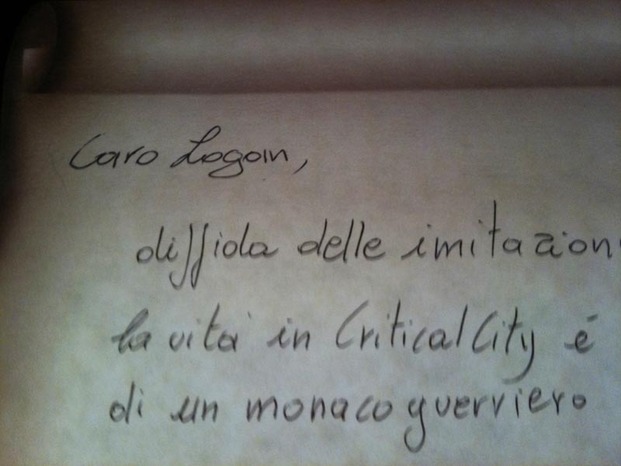 Caro Logan,
diffida delle imitazion
la vita in Critical City é
di un monaco guerriero